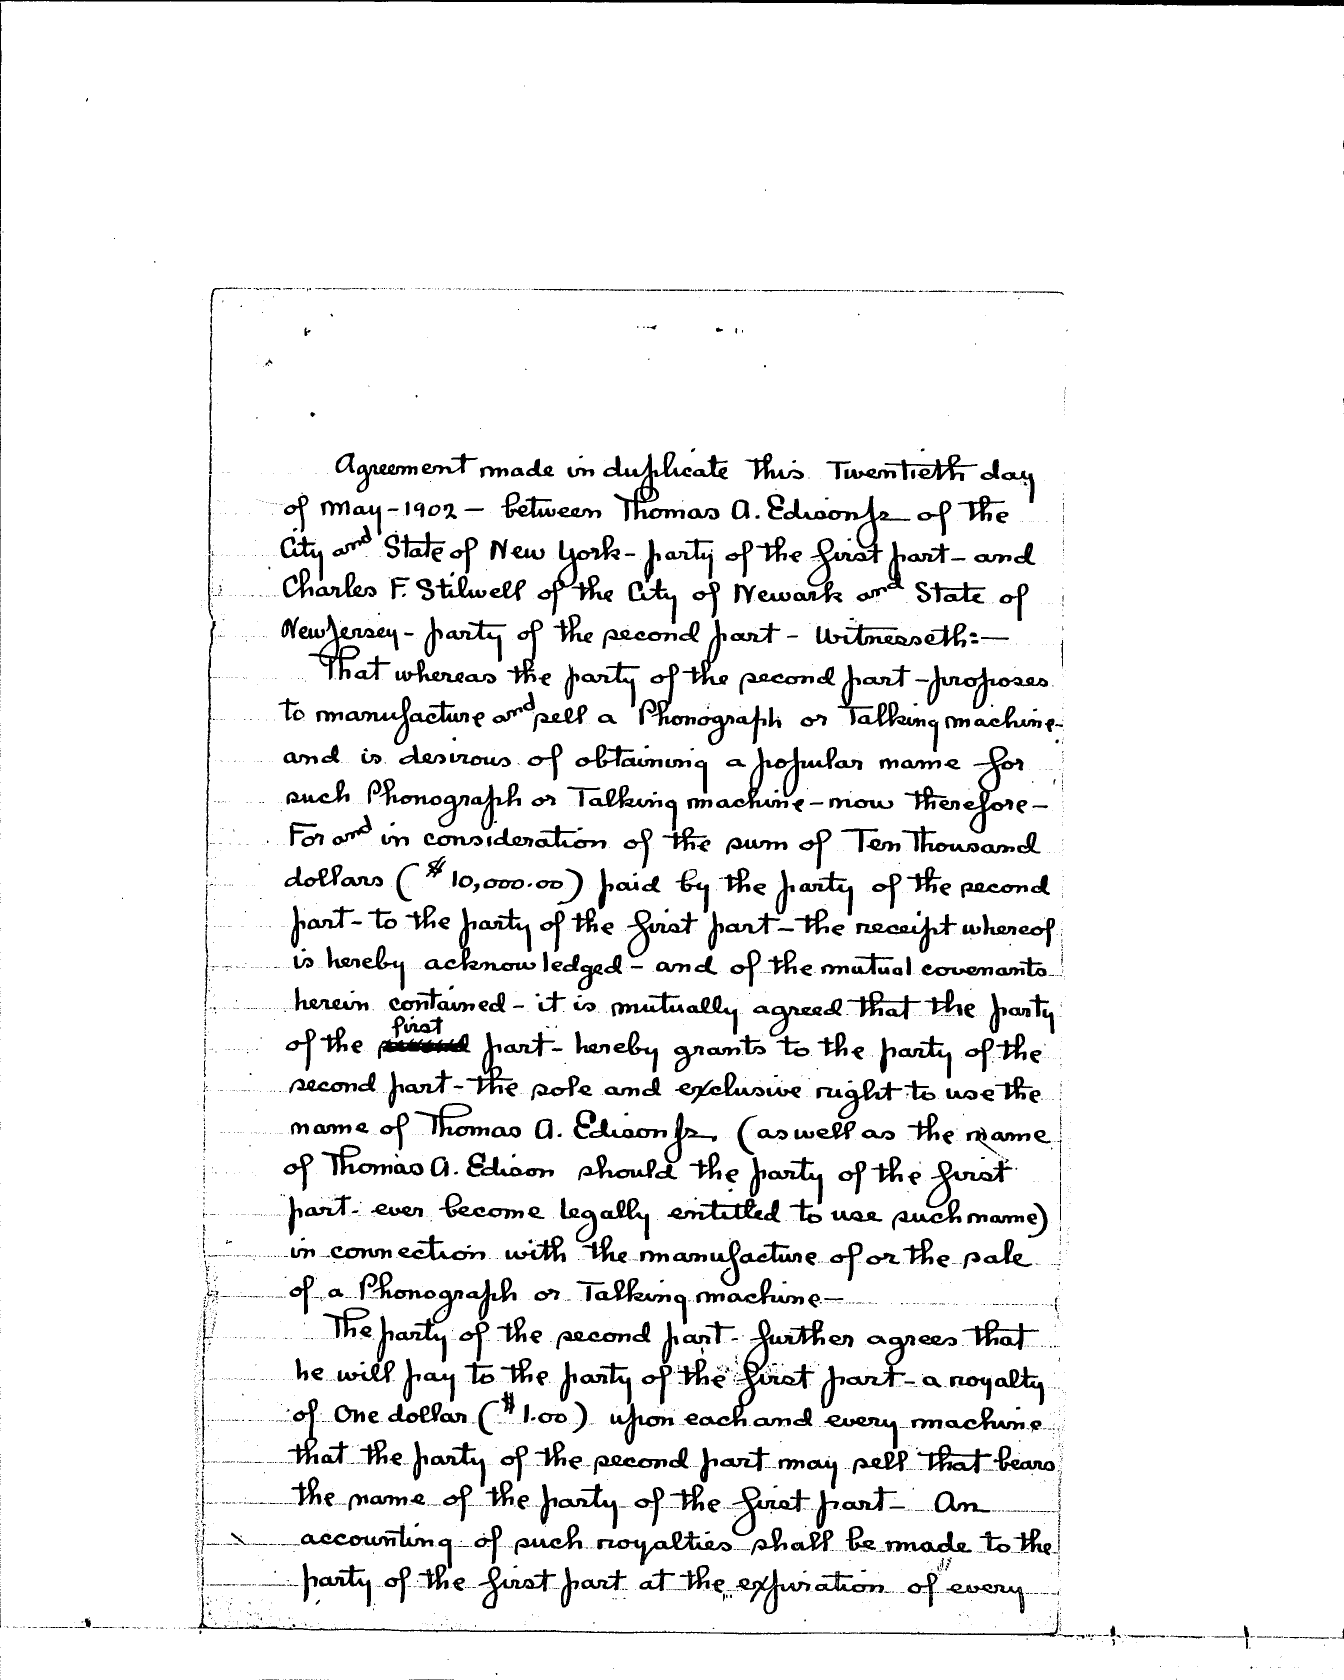 Agreement made in duplicate this Twentieth day
of May-1902- between Thomas A. Edison Jr of the
City and State of New York- party of the first part- and
Charles F. Stilwell of the City of Newark and State of
New Jersey- party of the second part- Witnesseth:-
That whereas the party of the second part-proposes
to manufacture and sell a Phonograph or Talking machine-
and is desirous of obtaining a popular name for
such Phonograph or Talking machine-now therefore-
For and in consideration of the sum of Ten Thousand
dollars ($10,000.00) paid by the party of the second
part- to the party of the first part-the receipt whereof
is hereby acknowledged- and of the mutual covenants
herein contained- it is mutually agreed that the party
first
of the second part- hereby grants to the party of the
second part-the sole and exclusive right to use the
name of Thomas A. Edison Jr. (as well as the name
of Thomas A. Edison should the party of the first
part- ever become legally entitled to use such name)
in connection with the manufacture of or the sale
of a Phonograph or Talking machine-
The party of the second part- further agrees that
he will pay to the party of the first part-a royalty
of One dollar ($1.00) upon each and every machine
that the party of the second part may sell that bears
the name of the party of the first part- An
accounting of such royalties shall be made to the
party of the first part at the expiration of every